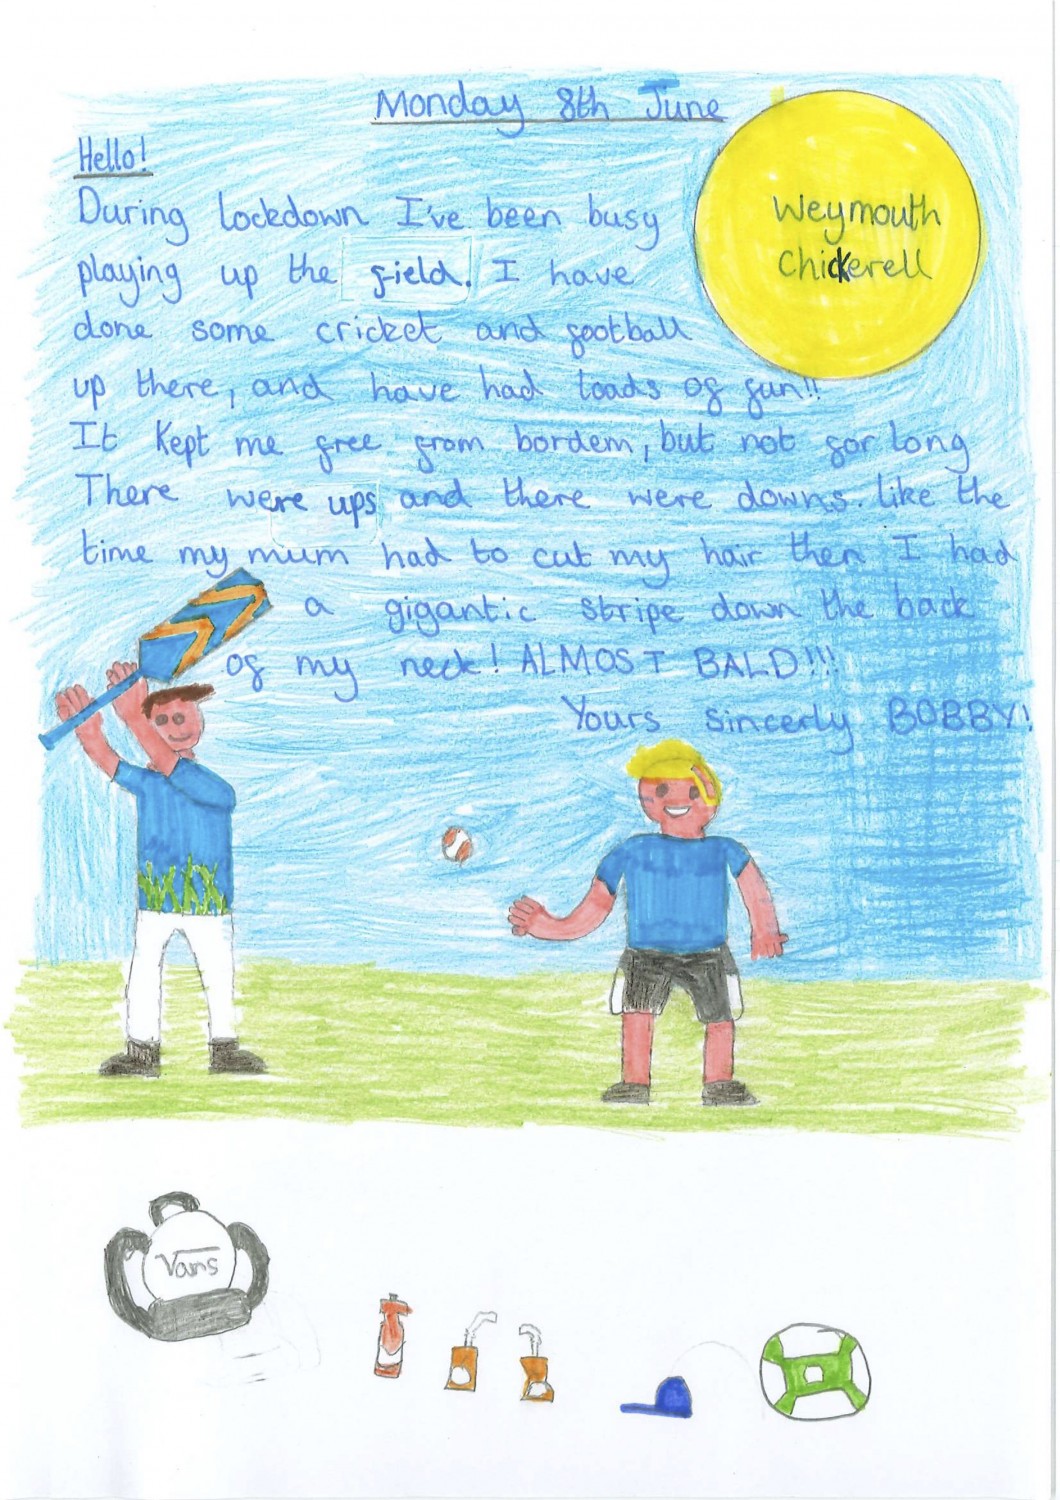 Monday 8th June
Weymouth
Chickerell
Hello!
During lockdown I've been busy
playing up the field. I have
done some cricket and football
up there, and have had loads of fun!!
It Kept me free from bordem, but not for long
There were ups and there were downs. like the
time my mum had to cut my hair then I had
a gigantic stripe down the back
of my neck! ALMOST BALD!!!
Yours sincerly BOBBY!
Vans